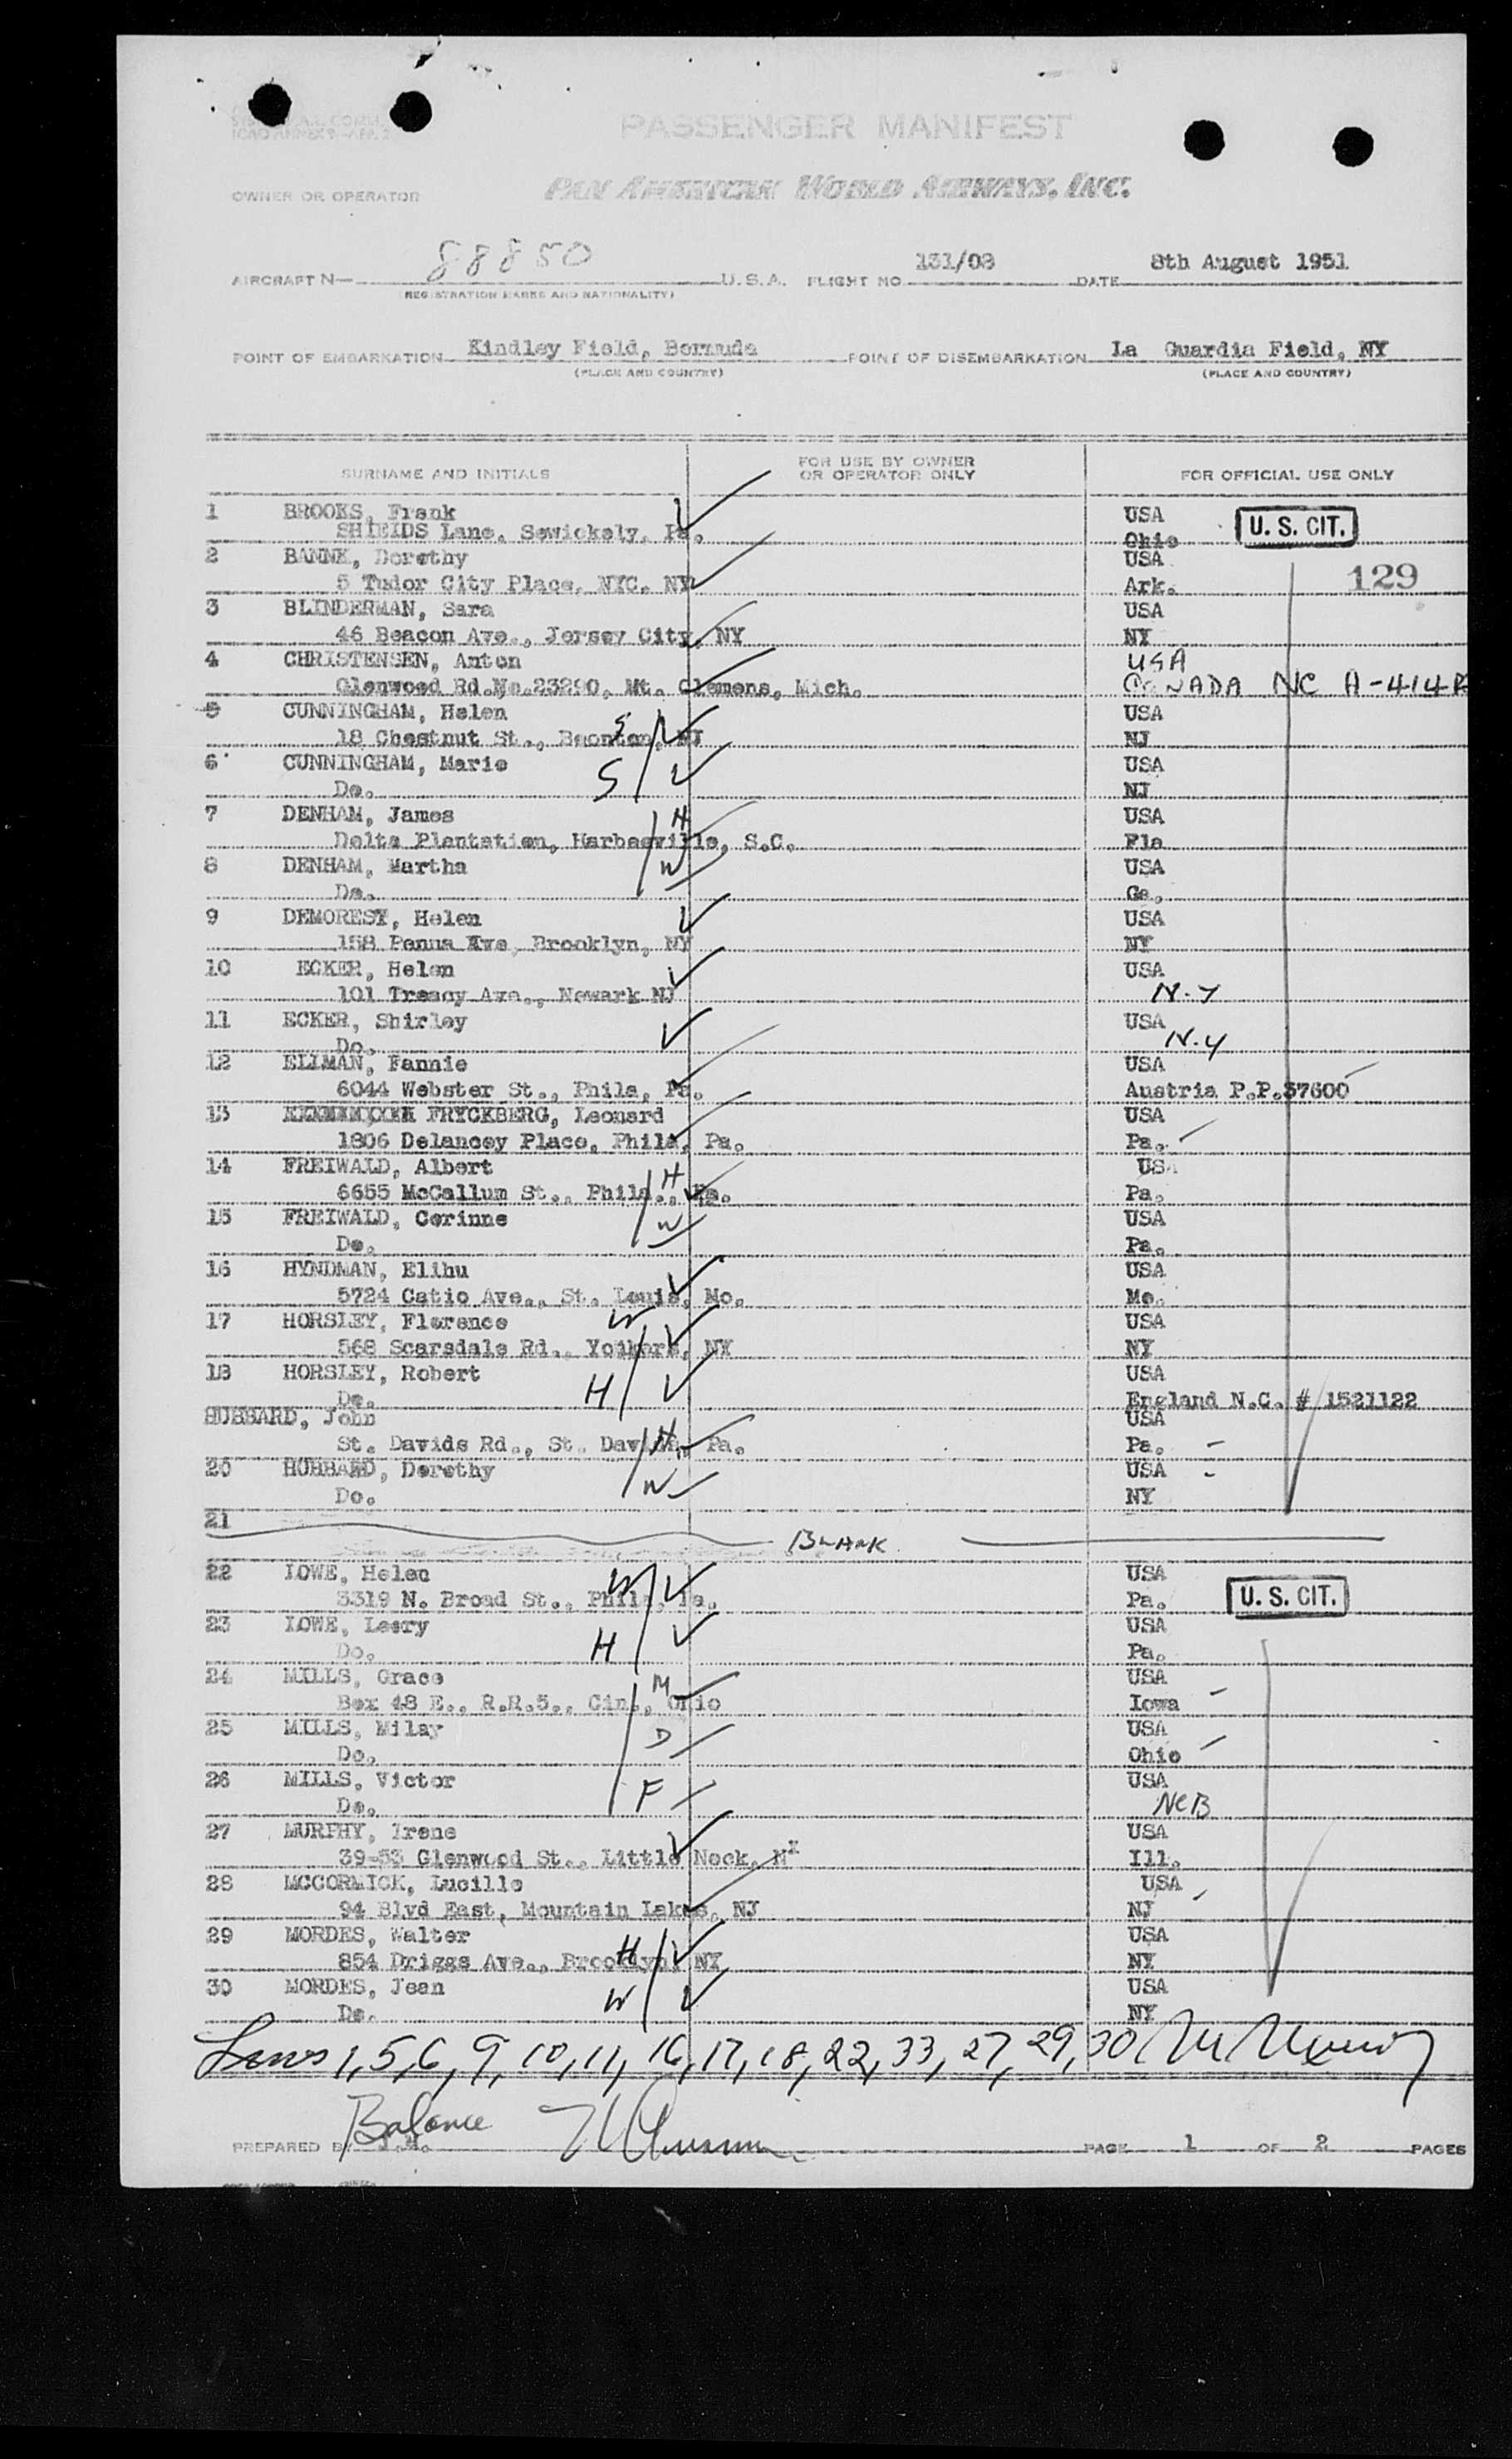 ICAO ANNEX 9-APP. 2
PASSENGER MANIFEST
OWNER OR OPERATOR PAN AMERICAN WORLD AIRWAYS, INC.
AIRCRAFT N— 88850 U.S.A. FLIGHT NO 131/08 DATE 8th August 1951
(REGISTRATION MARKS AND NATIONALITY)
POINT OF EMBARKATION Kindley Field, Bermuda POINT OF DISEMBARKATION La Guardia Field, NY
(PLACE AND COUNTRY) (PLACE AND COUNTRY)
SURNAME AND INITIALS FOR USE BY OWNER OR OPERATOR ONLY FOR OFFICIAL USE ONLY
1 BROOKS, Frank USA U. S. CIT.
SHIEIDS Lane, Sewickely, Pa. Ohio
2 BANNK, Dorothy USA
5 Tudor City Place, NYC. NY Ark. 129
3 BLINDERMAN, Sara USA
46 Beacon Ave., Jersey City, NY NY
4 CHRISTENSEN, Anton USA
Glenwood Rd.No.23290, Mt. Clemens, Mich. CANADA NC A-414
5 CUNNINGHAM, Helen S USA
18 Chestnut St., Boonton, NJ NJ
6 CUNNINGHAM, Marie USA
Do. S NJ
7 DENHAM, James H USA
Delta Plantation, Harbeeville, S.C. Fla
8 DENHAM, Martha W USA
Do. Ga.
9 DEMOREST, Helen USA
158 Penna Ave, Brooklyn, NY NY
10 ECKER, Helen USA
101 Treacy Ave., Newark NJ N.Y
11 ECKER, Shirley USA
Do. N.Y
12 ELLMAN, Fannie USA
6044 Webster St., Phila, Pa. Austria P.P.37600
13 FRYCKBERG, Leonard USA
1806 Delancey Place, Phila, Pa. Pa.
14 FREIWALD, Albert H USA
6655 McCallum St., Phila., Pa. Pa.
15 FREIWALD, Corinne W USA
Do. Pa.
16 HYNDMAN, Elihu USA
5724 Catio Ave., St. Louis, Mo. Mo.
17 HORSLEY, Florence W USA
568 Scarsdale Rd., Yonkers, NY NY
18 HORSLEY, Robert USA
Do. H England N.C. # 1521122
HUBBARD, John USA
St. Davids Rd., St. Davids, Pa. H Pa.
20 HUBBARD, Dorothy W USA
Do. NY
21
BLANK
22 LOWE, Helen W USA
3319 N. Broad St., Phila, Pa. Pa. U. S. CIT.
23 LOWE, Leery USA
Do. H Pa.
24 MILLS, Grace M USA
Box 48 E., R.R.5., Cin., Ohio Iowa
25 MILLS, Milay D USA
Do. Ohio
26 MILLS, Victor F USA
Do. NEB
27 MURPHY, Irene USA
39-53 Glenwood St., Little Neck, NY Ill.
28 MCCORMICK, Lucille USA
94 Blvd East, Mountain Lakes, NJ NJ
29 MORDES, Walter H USA
854 Driggs Ave., Brooklyn, NY NY
30 MORDES, Jean W USA
Do. NY
Lines 1, 5, 6, 9, 10, 11, 16, 17, 18, 22, 33, 27, 29, 30
Balance
PREPARED BY J.M. PAGE 1 OF 2 PAGES